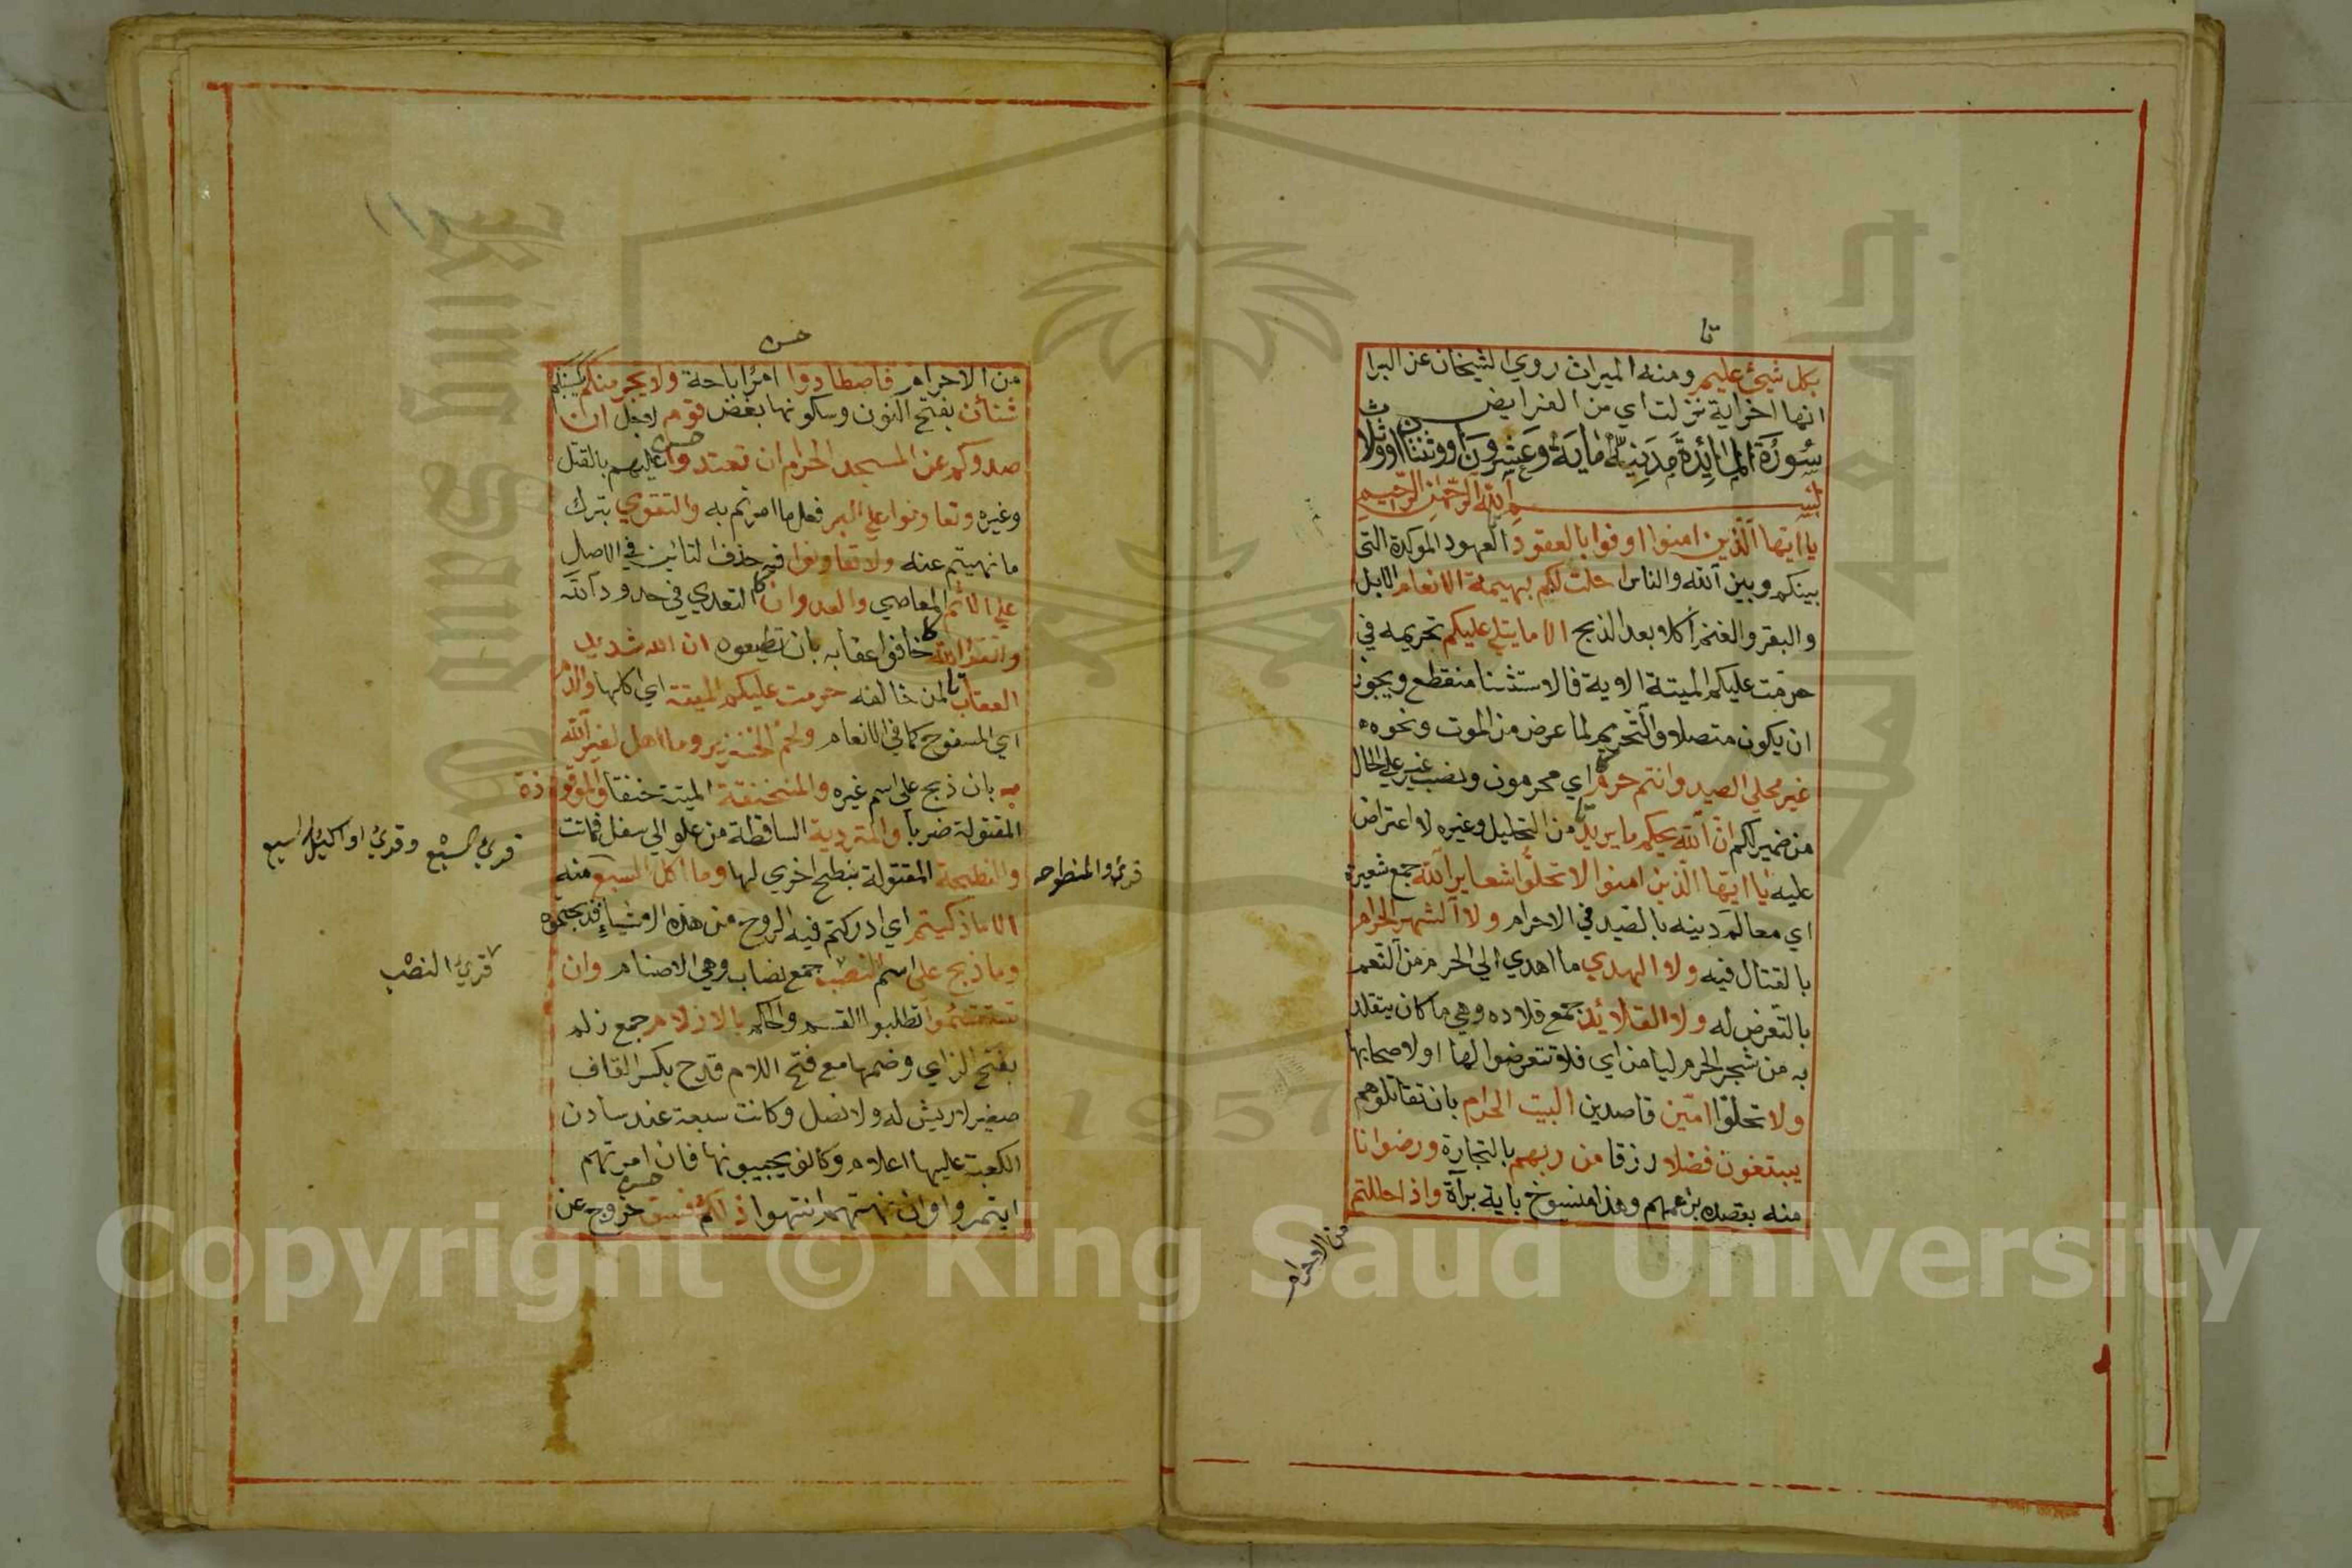 تا
بكل شيئ عليم ومنه الميراث روي الشيخان عن البرا
انها اخر اية نزلت اي من الفرايض
سُورَةُ المَائِدَةِ مَدَنِيَّة مايَة وَعِشْرُونَ اووثنتان اووثلاث
بسم الله الرحمن الرحيم
يا ايها الذين امنوا اوفوا بالعقود العهود الموكدة التي
بينكم وبين الله والناس احلت لكم بهيمة الانعام الابل
والبقر والغنم أكلا بعد الذبح الا ما يتلي عليكم تحريمه في
حرمت عليكم الميتة الاية فالاستثنا منقطع ويجوز
ان يكون متصلا والتحريم لما عرض من الموت ونحوه
غير محلي الصيد وانتم حرم اي محرمون ونصب غير علي الحال
من ضمير لكم ان الله يحكم ما يريد من التحليل وغيره لا اعتراض
عليه يا ايها الذين امنوا لا تحلوا شعاير الله جمع شعيرة
اي معالم دينه بالصيد في الاحرام ولا الشهر الحرام
بالقتال فيه ولا الهدي ما اهدي الي الحرم من النعم
بالتعرض له ولا القلائد جمع قلاده وهي ما كان يتقلد
به من شجر الحرم ليامن اي فلا تتعرضوا لها او لاصحابها
ولا تحلوا امّين قاصدين البيت الحرام بان تقاتلوهم
يبتغون فضلا رزقا من ربهم بالتجارة ورضوانا
منه بقصده بزعمهم وهذا منسوخ باية برآة واذا حللتم
من الاحرام
من الاحرام فاصطادوا امر اباحة ولا يجرمنكم يكسبنكم
شنأن بفتح النون وسكونها بغض قوم لاجل ان
صدوكم عن المسجد الحرام ان تعتدوا عليهم بالقتل
وغيره وتعاونوا علي البر فعل ما امرتم به والتقوي بترك
ما نهيتم عنه ولا تعاونوا فيه حذف التائين في الاصل
علي الاثم المعاصي والعدوان التعدي في حدود الله
واتقوا الله خافوا عقابه بان تطيعوه ان الله شديد
العقاب لمن خالفه حرمت عليكم الميتة اي اكلها والدم
اي المسفوح كما في الانعام ولحم الخنزير وما اهل لغير الله
به بان ذبح علي اسم غيره والمنخنقة الميتة خنقا والموقوذة
المقتولة ضربا والمتردية الساقطة من علو الي سفل فماتت
والنطيحة المقتولة بنطح اخري لها وما اكل السبع منه
الا ما ذكيتم اي ادركتم فيه الروح من هذه الاشياء فذبحتموه
وما ذبح علي اسم النصب جمع نصاب وهي الاصنام وان
تستقسموا تطلبوا القسم والحكم بالازلام جمع زلم
بفتح الزاي وضمها مع فتح اللام قدح بكسر القاف
صغير لا ريش له ولا نصل وكانت سبعة عند سادن
الكعبة عليها اعلام وكانو يجيبونها فان امرتهم
ايتمروا وان نهتهم انتهوا ذلكم فسق خروج عن
قرئ والمنطوحه
قرئ السبْع وقرئ او اكيل السبع
قرئ النصْب
Copyright © King Saud University
1957